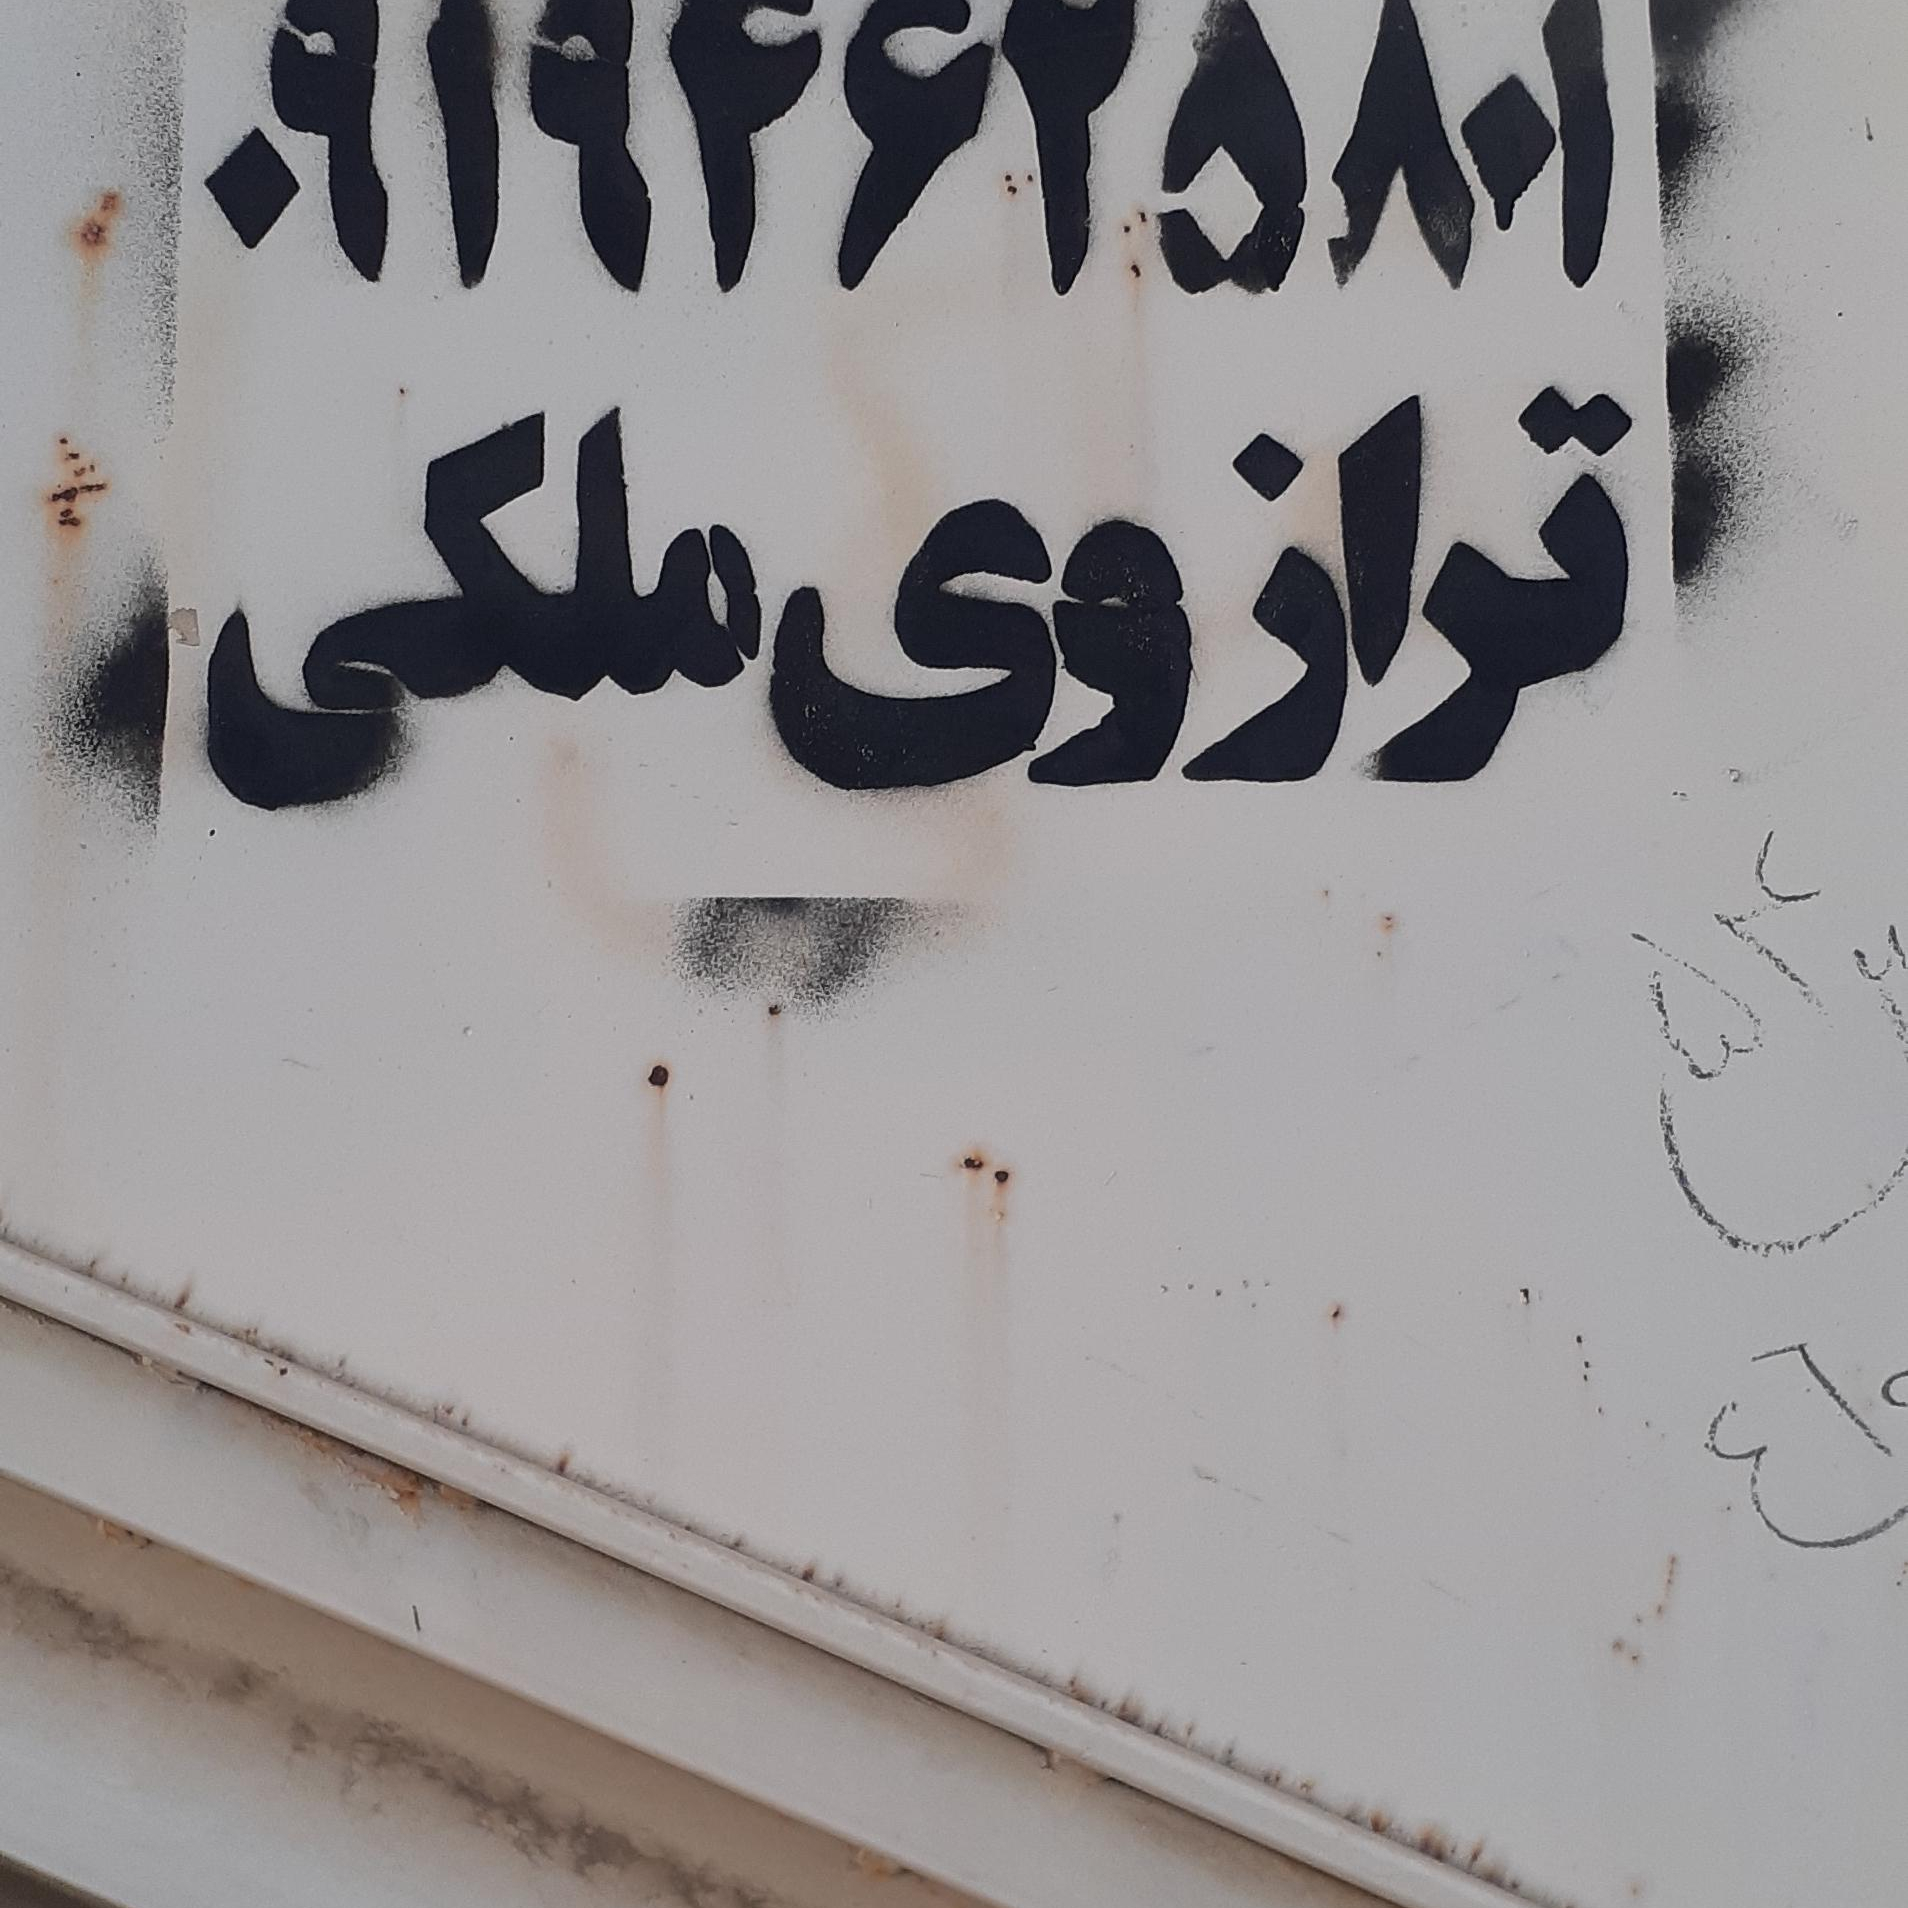 ۰۹۱۹۴۶۲۵۸۰۱
ترازوی ملکی